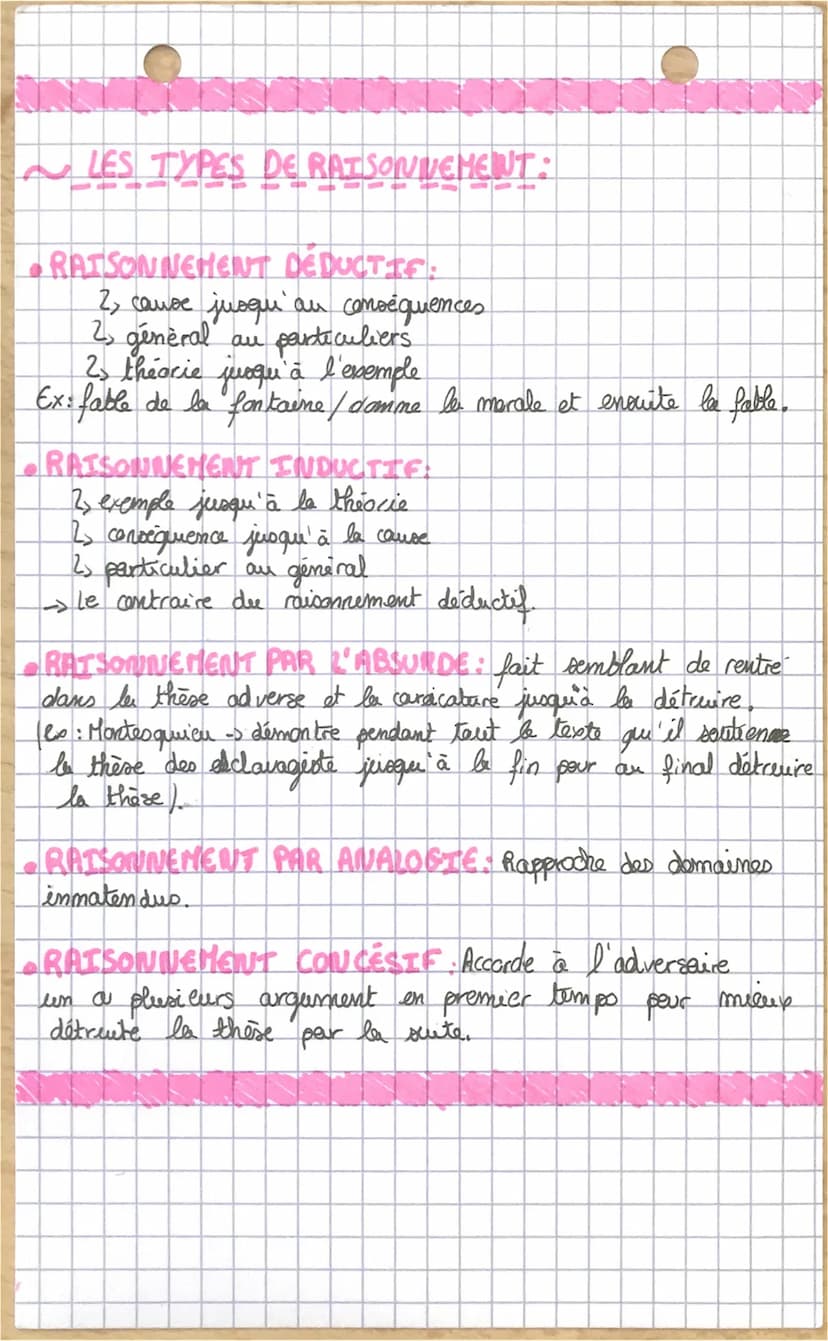 ~ LES TYPES DE RAISONNEMENT :
• RAISONNEMENT DÉDUCTIF :
↳ cause jusqu'au conséquences
↳ général au particuliers
↳ théorie jusqu'à l'exemple
Ex : fable de la fontaine / donne la morale et ensuite la fable.
• RAISONNEMENT INDUCTIF :
↳ exemple jusqu'à la théorie
↳ conséquence jusqu'à la cause
↳ particulier au général
→ Le contraire du raisonnement déductif.
• RAISONNEMENT PAR L'ABSURDE : fait semblant de rentré
dans la thèse adverse et la caricature jusqu'à la détruire.
(ex : Montesquieu → démontre pendant tout le texte qu'il soutienne
la thèse des esclavagiste jusqu'à la fin pour au final détruire
la thèse).
• RAISONNEMENT PAR ANALOGIE : Rapproche des domaines
inmatendus.
• RAISONNEMENT CONCÉSIF : Accorde à l'adversaire
un a plusieurs argument en premier temps pour mieux
détruite la thèse par la suite.